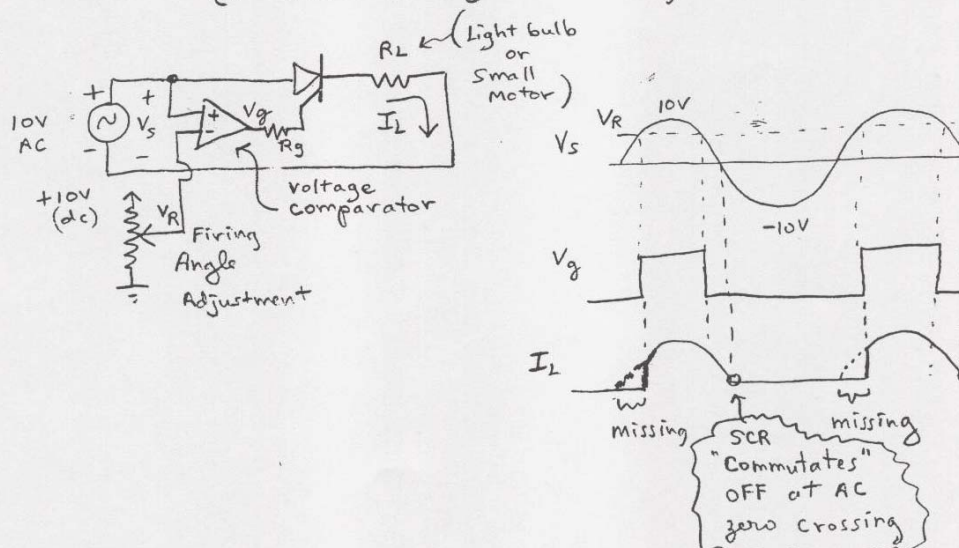 RL
(Light bulb
or
Small
Motor)
+
+
10V
AC
Vs
-
-
+
-
Vg
Rg
IL
voltage
comparator
+10V
(dc)
VR
Firing
Angle
Adjustment
VR
10V
Vs
-10V
Vg
IL
missing
missing
SCR
"Commutates"
OFF at AC
zero crossing